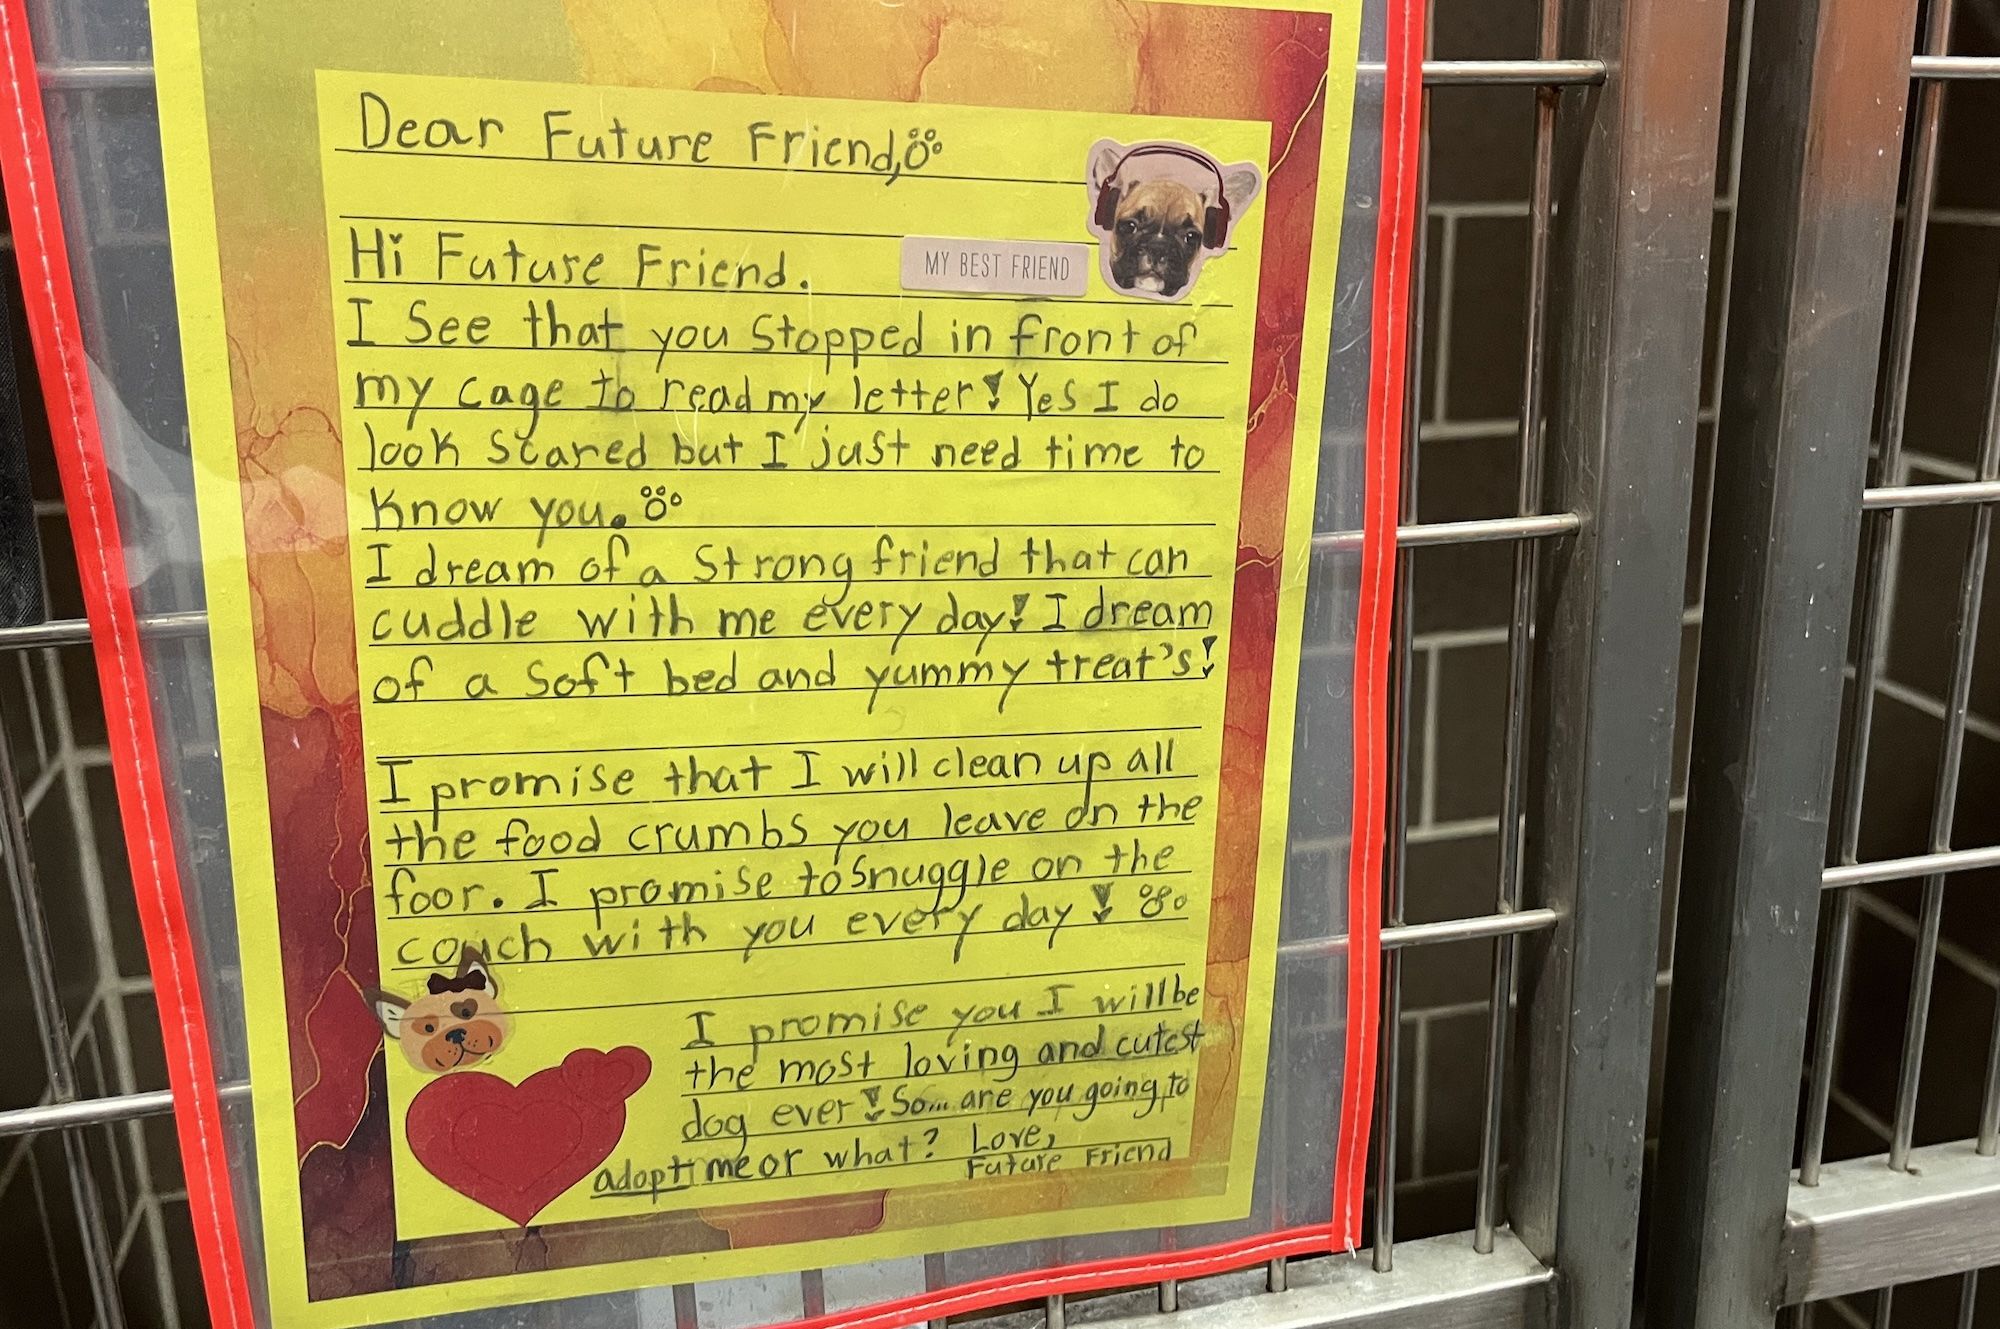 Dear Future Friend,
Hi Future Friend.
MY BEST FRIEND
I See that you Stopped in front of
my cage to read my letter! Yes I do
look scared but I just need time to
Know you.
I dream of a Strong friend that can
cuddle with me every day! I dream
of a soft bed and yummy treat's!
I promise that I will clean up all
the food crumbs you leave on the
foor. I promise to snuggle on the
couch with you every day!
I promise you I will be
the most loving and cutest
dog ever! So... are you going to
adopt me or what? Love,
Future Friend